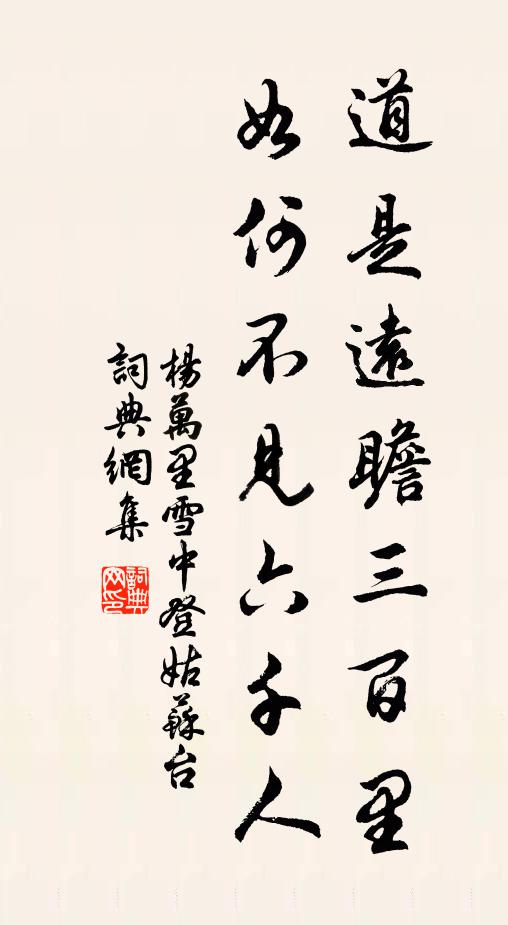 道是遠瞻三百里
如何不見六千人
楊萬里雪中登姑蘇台
詞典網集
詞典网印